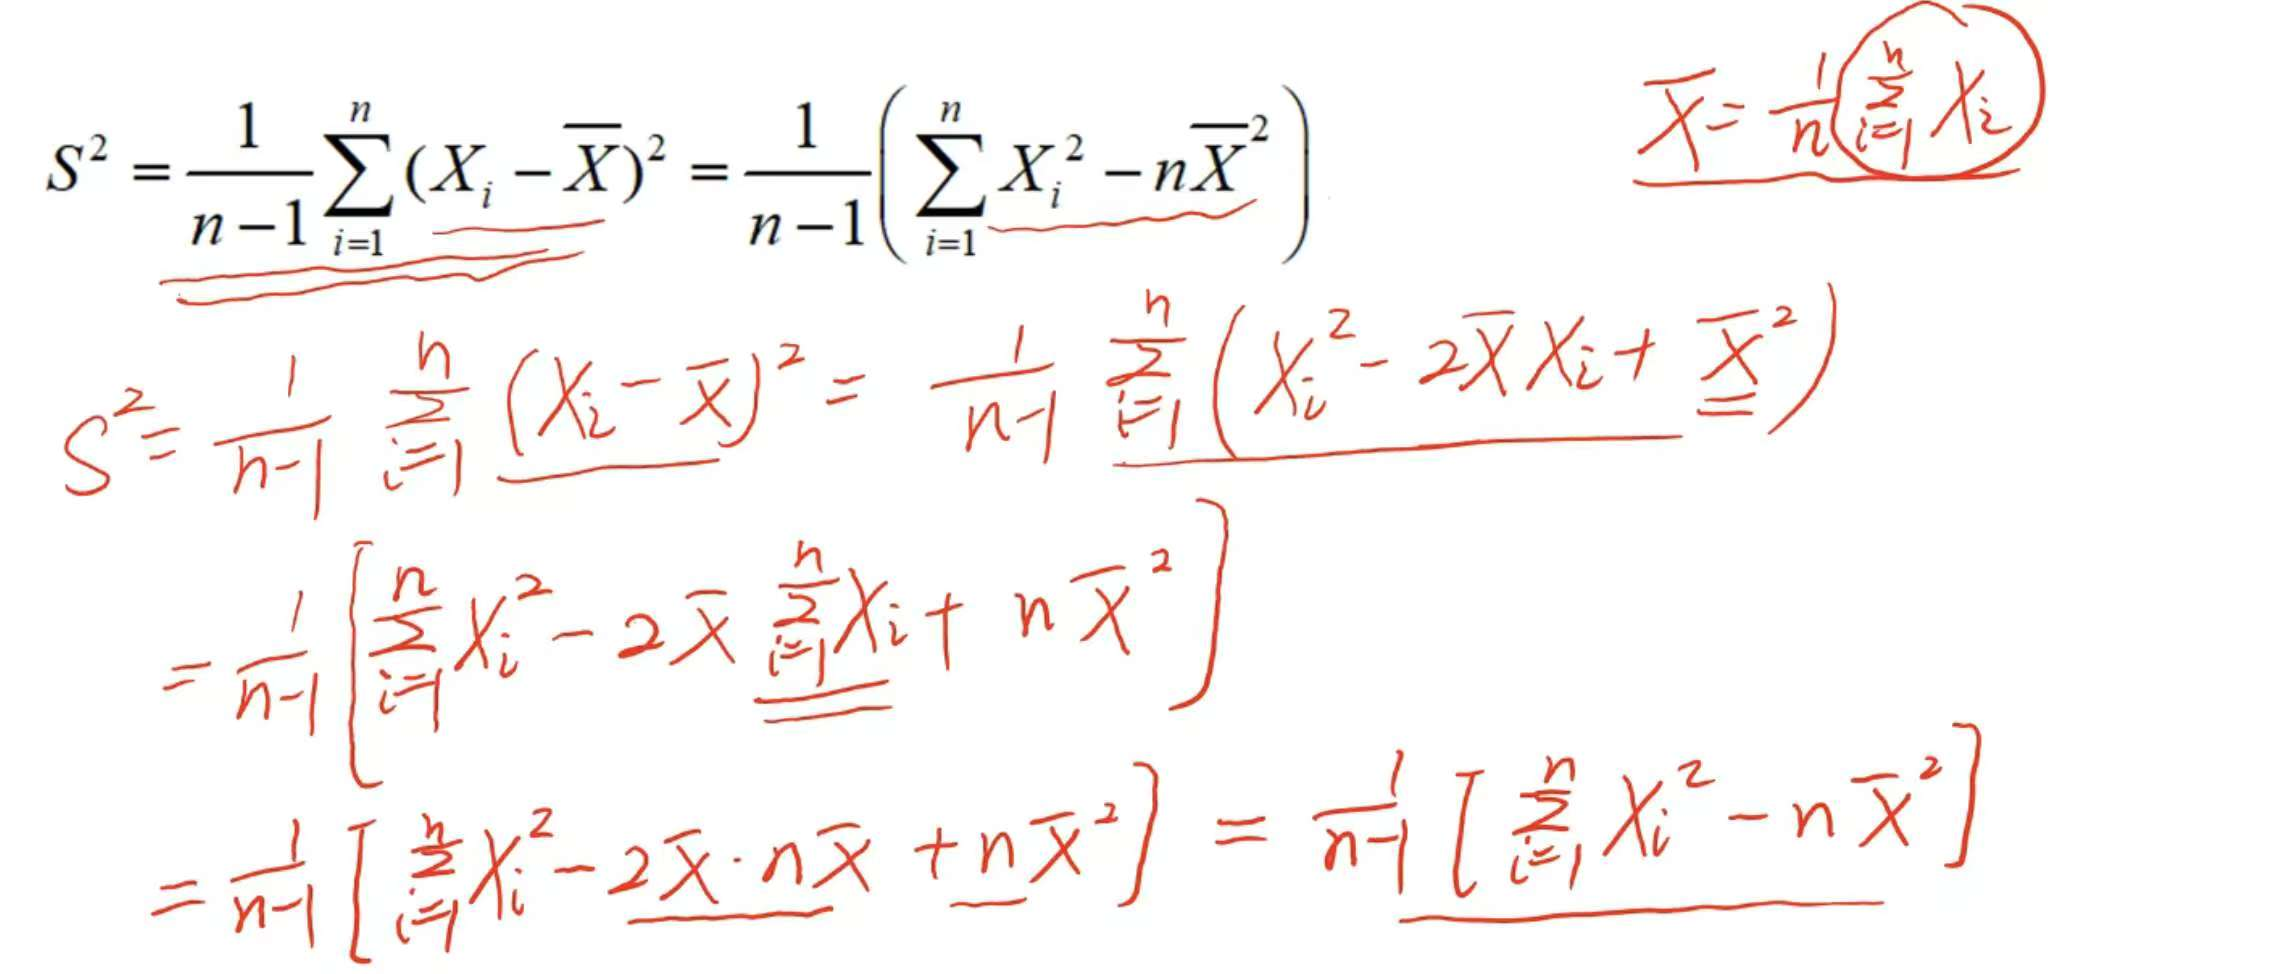 S² = 1/(n−1) ∑_{i=1}^{n} (X_i − X̄)² = 1/(n−1) (∑_{i=1}^{n} X_i² − nX̄²)
X̄ = 1/n ∑_{i=1}^{n} X_i
S² = 1/(n−1) ∑_{i=1}^{n} (X_i − X̄)² = 1/(n−1) ∑_{i=1}^{n} (X_i² − 2X̄X_i + X̄²)
= 1/(n−1) [∑_{i=1}^{n} X_i² − 2X̄ ∑_{i=1}^{n} X_i + nX̄²]
= 1/(n−1) [∑_{i=1}^{n} X_i² − 2X̄·nX̄ + nX̄²] = 1/(n−1) [∑_{i=1}^{n} X_i² − nX̄²]